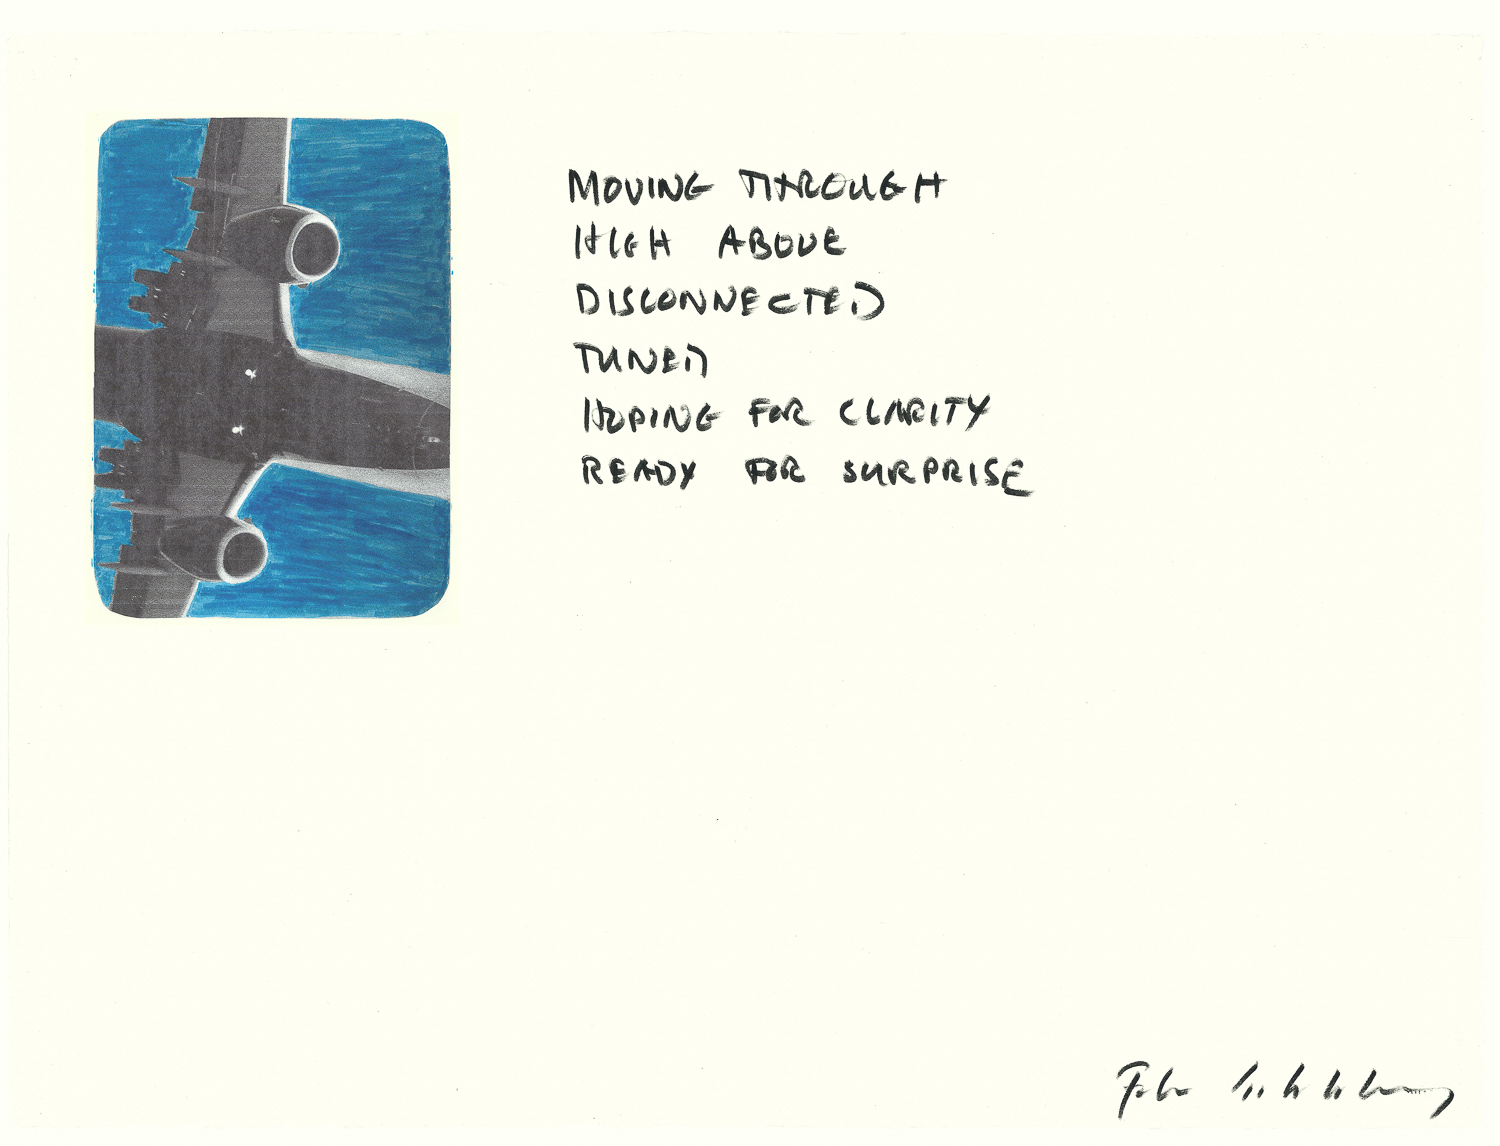 MOVING THROUGH
HIGH ABOVE
DISCONNECTED
TUNED
HOPING FOR CLARITY
READY FOR SURPRISE